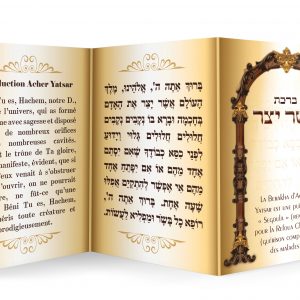 duction Acher Yatsar
Tu es, Hachem, notre D.,
e l'univers, qui as formé
me avec sagesse et disposé
de nombreux orifices
cavités.
t le trône de Ta gloire,
manifeste, évident, que si
eux venait à s'obstruer
'ouvrir, on ne pourrait
re, ne fût-ce qu'une
Béni Tu es, Hachem,
éris toute créature et
prodigieusement.
בָּרוּךְ אַתָּה ה', אֱלֹהֵינוּ, מֶלֶךְ
הָעוֹלָם אֲשֶׁר יָצַר אֶת הָאָדָם
בְּחָכְמָה וּבָרָא בוֹ נְקָבִים נְקָבִים
חֲלוּלִים חֲלוּלִים. גָּלוּי וְיָדוּעַ
לִפְנֵי כִסֵּא כְבוֹדֶךָ שֶׁאִם יִסָּתֵם
אֶחָד מֵהֶם אוֹ אִם יִפָּתֵחַ אֶחָד
מֵהֶם אִי אֶפְשַׁר לְהִתְקַיֵּם אֲפִלּוּ
שָׁעָה אֶחָת. בָּרוּךְ אַתָּה ה',
רוֹפֵא כָל בָּשָׂר וּמַפְלִיא לַעֲשׂוֹת.
ברכת
שר יצר
La Berakha d'A
Yatsar est une pu
« Segoula » (re
pour la Refoua Ch
(guérison comp
des malades